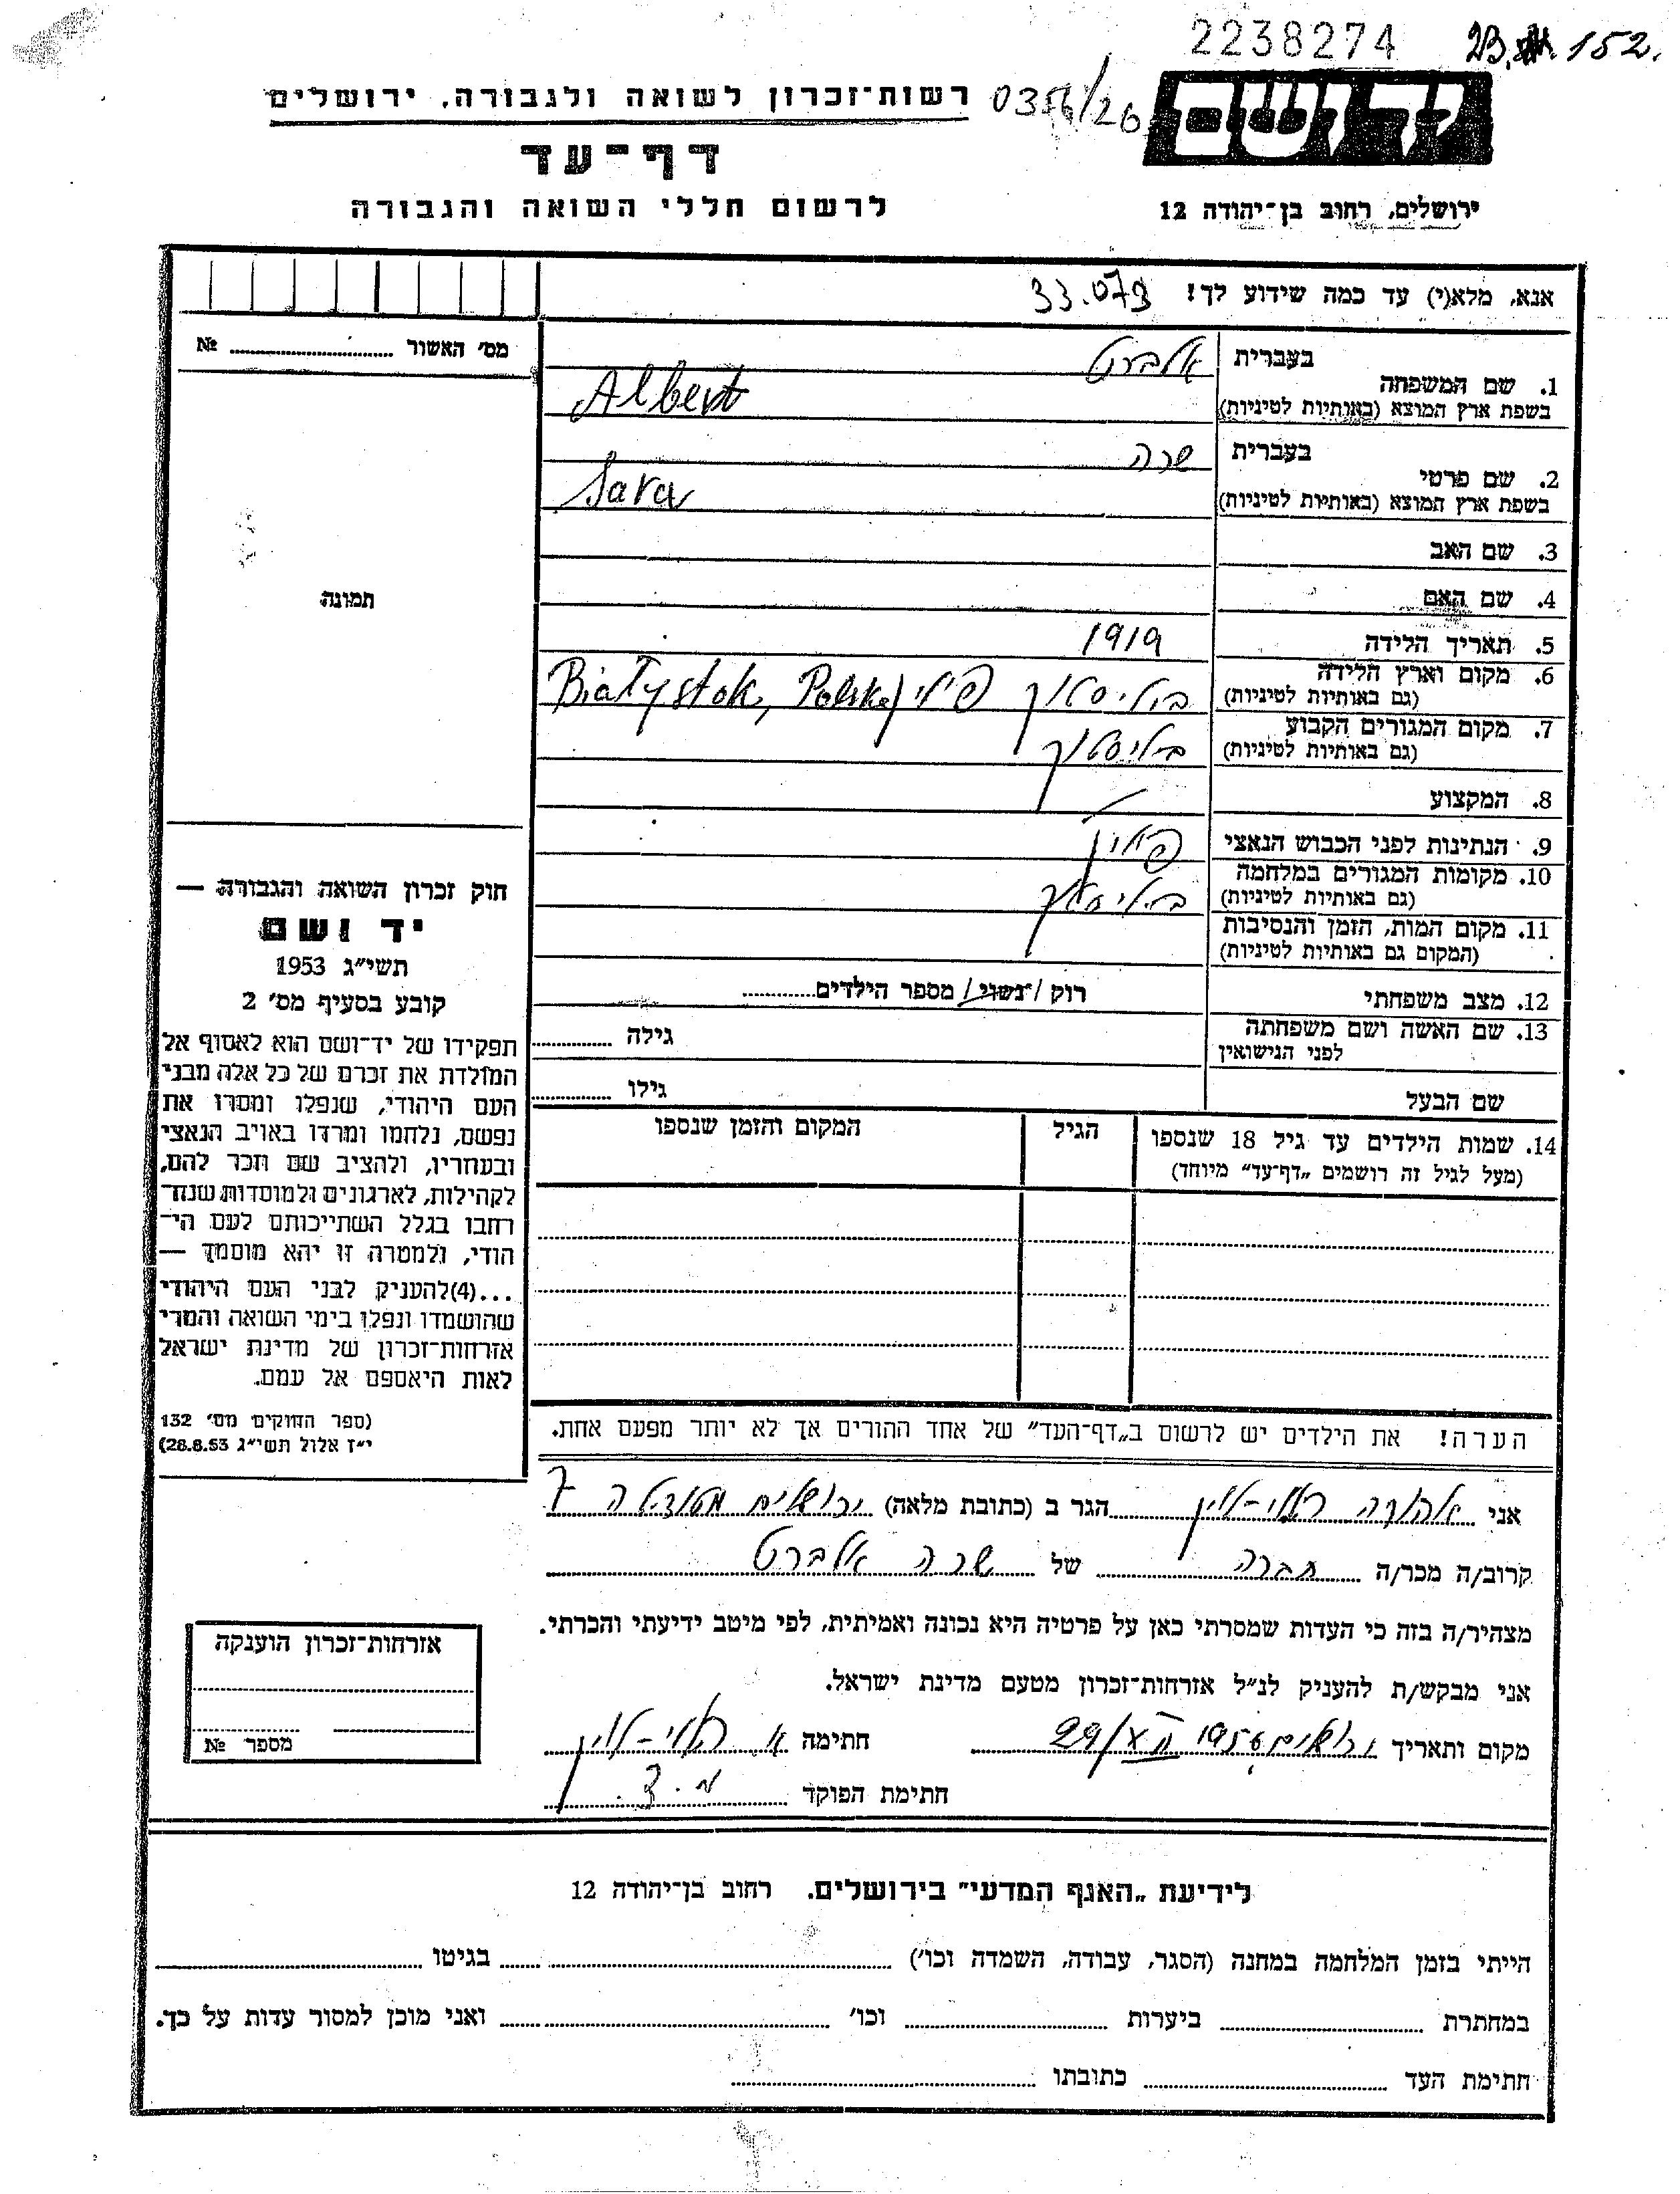 2238274
152.
רשות־זכרון לשואה ולגבורה, ירושלים
דף־עד
לרשום חללי השואה והגבורה
ירושלים, רחוב בן־יהודה 12
אנא, מלא(י) עד כמה שידוע לך! 33.073
מס׳ האשור № ..........
1. שם המשפחה
בעברית אלברט
בשפת ארץ המוצא (באותיות לטיניות) Albert
2. שם פרטי
בעברית שרה
בשפת ארץ המוצא (באותיות לטיניות) Sara
3. שם האב
4. שם האם
תמונה
5. תאריך הלידה 1919
6. מקום וארץ הלידה
(גם באותיות לטיניות) Białystok, Polska
7. מקום המגורים הקבוע
(גם באותיות לטיניות) ביליסטוק
8. המקצוע
9. הנתינות לפני הכבוש הנאצי
10. מקומות המגורים במלחמה
(גם באותיות לטיניות)
11. מקום המות, הזמן והנסיבות
(המקום גם באותיות לטיניות)
12. מצב משפחתי רוק / נשוי / מספר הילדים..........
13. שם האשה ושם משפחתה
לפני הנישואין
גילה ..........
שם הבעל גילו ..........
14. שמות הילדים עד גיל 18 שנספו
(מעל לגיל זה רושמים „דף־עד” מיוחד)
הגיל
המקום והזמן שנספו
חוק זכרון השואה והגבורה —
יד ושם
תשי״ג 1953
קובע בסעיף מס׳ 2
תפקידו של יד־ושם הוא לאסוף אל
המולדת את זכרם של כל אלה מבני
העם היהודי, שנפלו ומסרו את
נפשם, נלחמו ומרדו באויב הנאצי
ובעוזריו, ולהציב שם וזכר להם,
לקהילות, לארגונים ולמוסדות שנח־
רחבו בגלל השתייכותם לעם הי־
הודי, ולמטרה זו יהא מוסמך —
...(4)להעניק לבני העם היהודי
שהושמדו ונפלו בימי השואה והמרי
אזרחות־זכרון של מדינת ישראל
לאות היאספם אל עמם.
(ספר החוקים מס׳ 132
י״ז אלול תשי״ג 28.8.53)
הערה! את הילדים יש לרשום ב„דף־העד” של אחד ההורים אך לא יותר מפעם אחת.
אני .......... הגר ב (כתובת מלאה) ירושלים מטודלה 7
קרוב/ה מכר/ה חברה של שרה אלברט
מצהיר/ה בזה כי העדות שמסרתי כאן על פרטיה היא נכונה ואמיתית, לפי מיטב ידיעתי והכרתי.
אני מבקש/ת להעניק לנ״ל אזרחות־זכרון מטעם מדינת ישראל.
מקום ותאריך ירושלים חתימה
חתימת הפוקד
אזרחות־זכרון הוענקה
מספר №
לידיעת „האגף המדעי” בירושלים. רחוב בן־יהודה 12
הייתי בזמן המלחמה במחנה (הסגר, עבודה, השמדה וכו׳) .......... בגיטו ..........
במחתרת .......... ביערות .......... וכו׳ .......... ואני מוכן למסור עדות על כך.
חתימת העד .......... כתובתו ..........